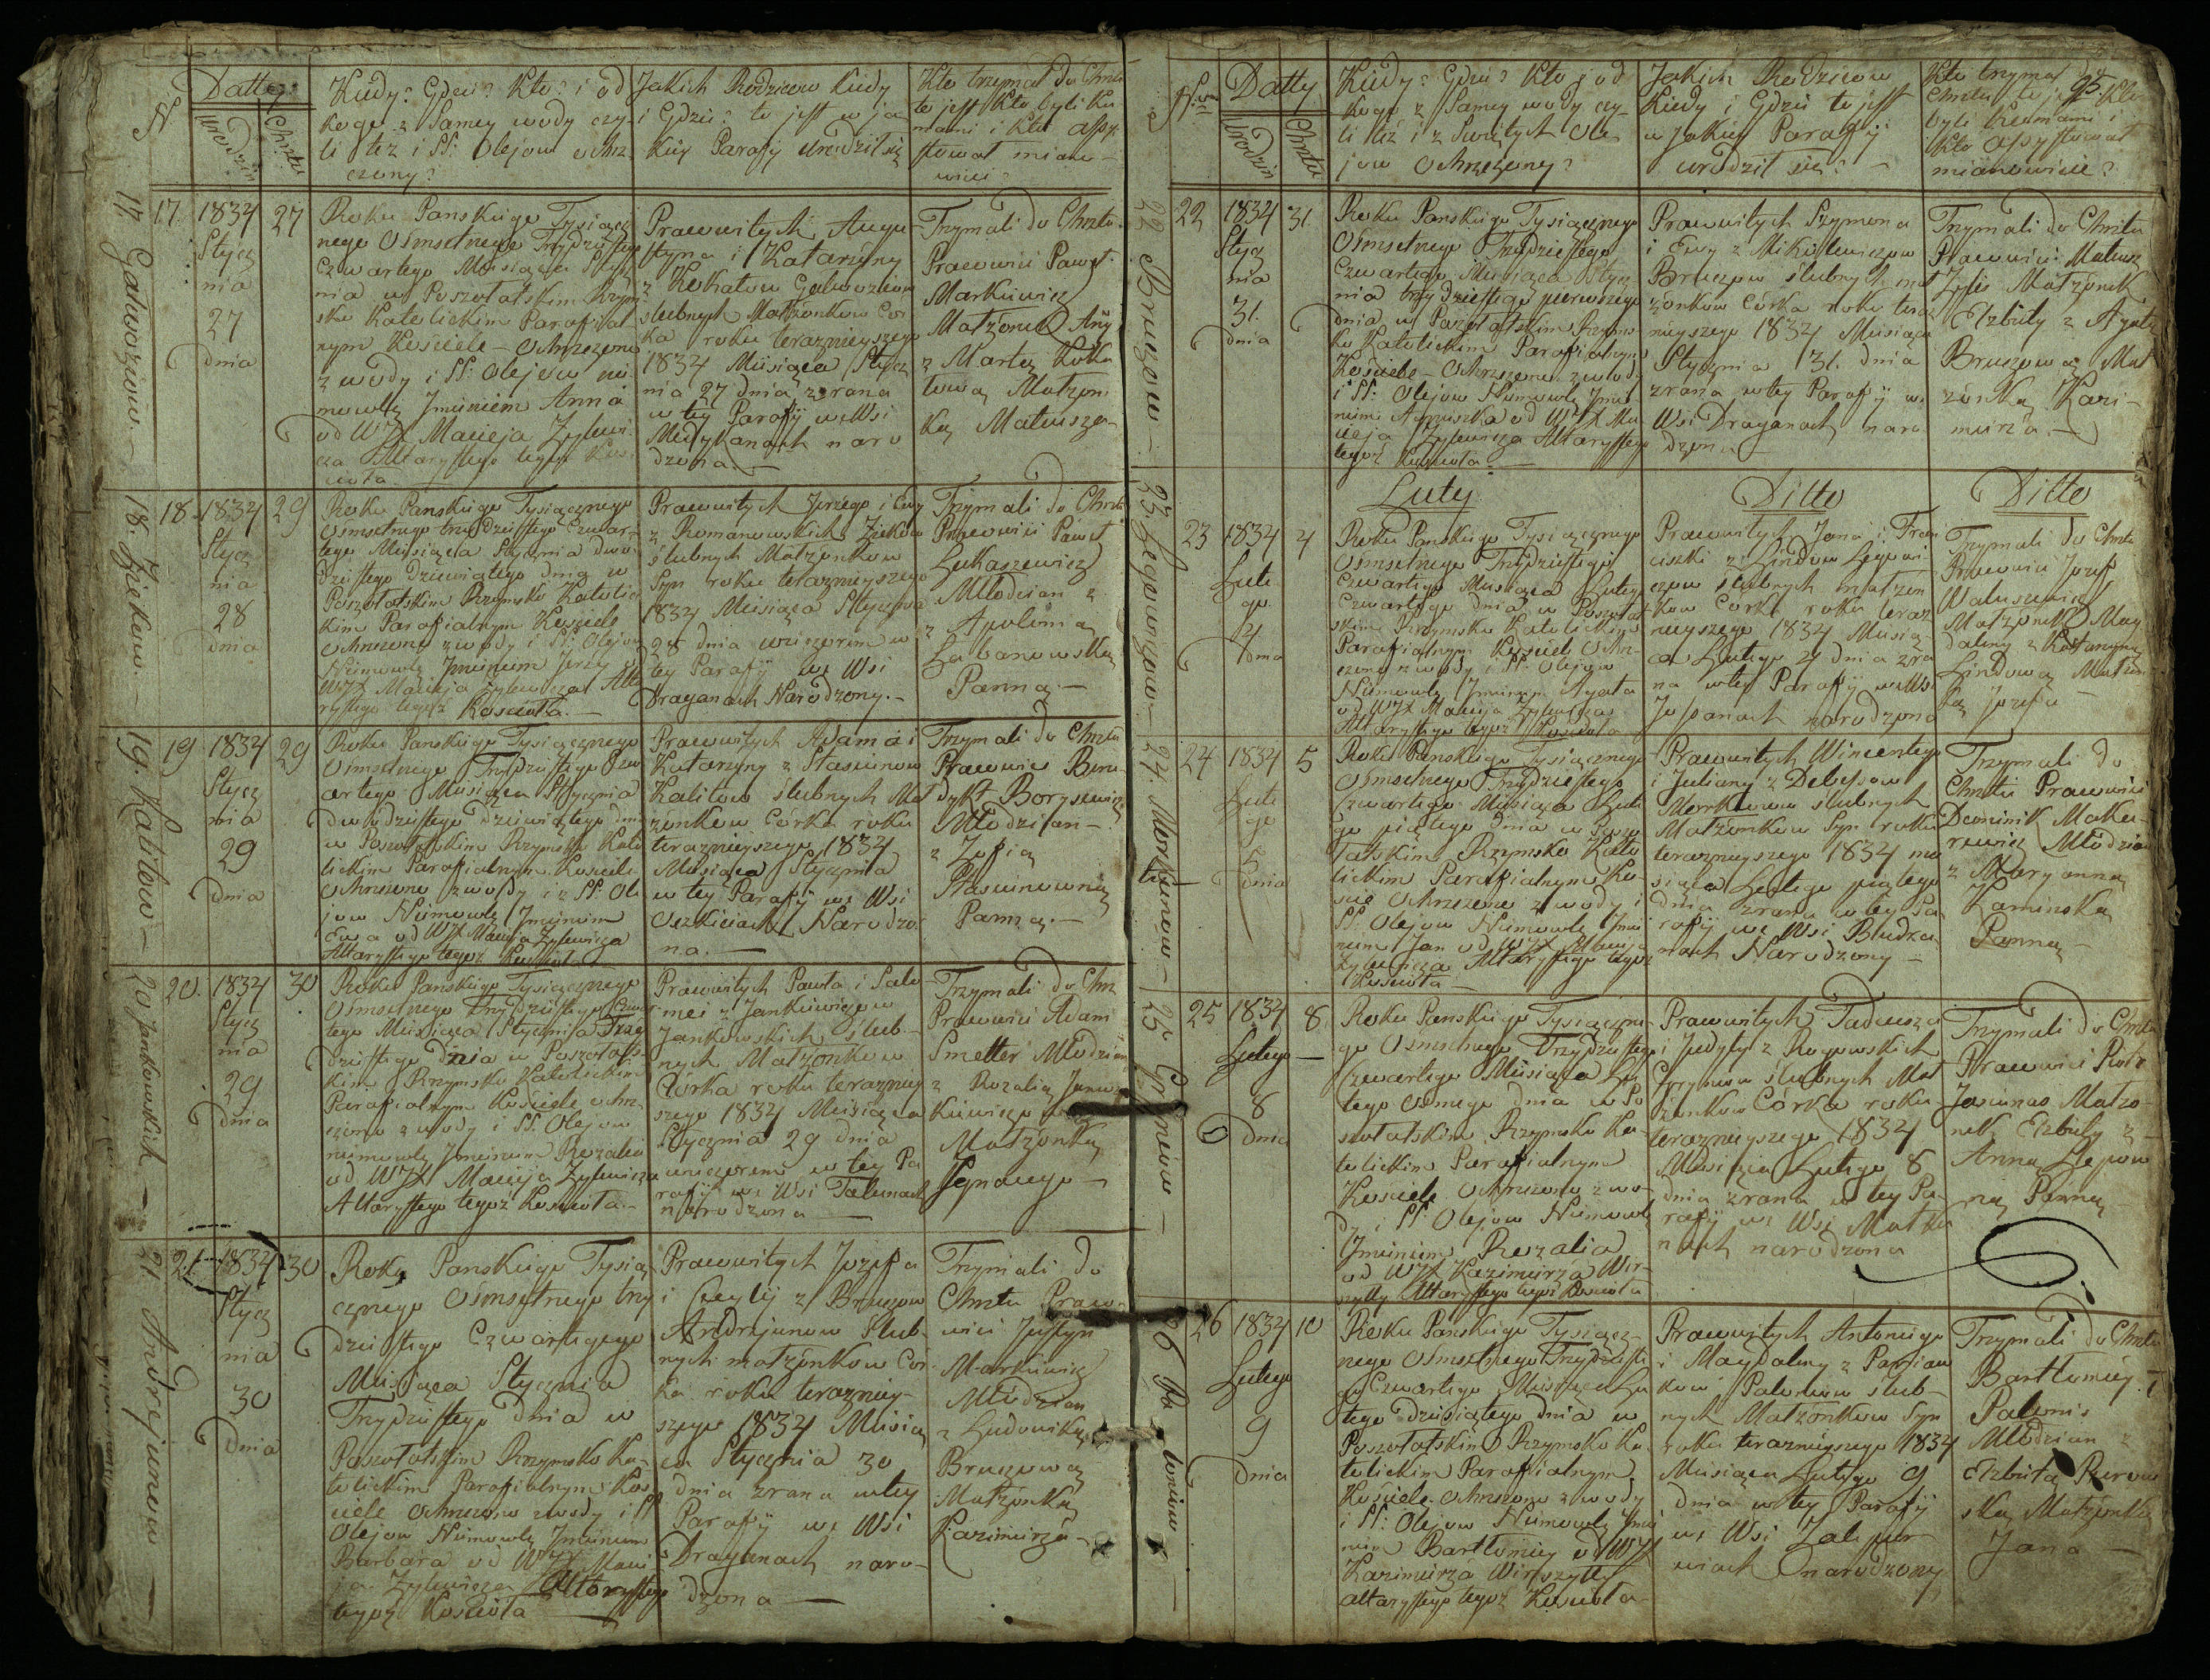 N
Datty
urodzin
Chrztu
Kiedy? Gdzie? Kto? i od
kogo z Samey wody czy
li też i SS: Olejow ochrz-
czony?
Jakich Rodzicow Kiedy
i Gdzie? to jest w ja
kiey Parafij urodził się
Kto trzymał do Chrztu
to jest Kto byli Ku
mami i Kto assy-
stował miano-
wicie?
17. Galwoziow
17
1834
Stycz
nia
27
dnia
27
Roku Panskiego Tysiącz
nego Osmsetnego Trzydziestego
Czwartego Miesiąca Stycz
nia w Poszołatskim Rzym
sko Katolickim Parafial
nym Kosciele Ochrzczono
z wody i SS: Olejow nie
mowlę Jmieniem Anna
od WJX Macieja Żylewi
cza Altarystego tegoż Kos
cioła
Prawowitych Augu
styna i Katarzyny
z Kokatow Galwoziow
slubnych Małżonkow Cor
ka roku teraznieyszego
1834 Miesiąca Stycz
nia 27 dnia z rana
w tey Parafij we Wsi
Miedykanach naro
dzona.
Trzymali do Chrztu
Pracowici Paweł
Markiewicz
Małżonek Anny
z Martą Koka
tową Małżon
ką Mateusza
18. Ziękow
18
1834
Stycz
nia
28
dnia
29
Roku Panskiego Tysiącznego
Osmsetnego trzydziestego Czwar
tego Miesiąca Stycznia dwó
dziestego dziewiątego dnia w
Poszołatskim Rzymsko Katolic
kim Parafialnym Kosciele
Ochrzczono z wody i SS: Olejow
Niemowlę Jmieniem Jerzy od
WJX Macieja Żylewicza Alta
rystego tegoż Kosciola.
Prawowitych Jerzego i Ewy
z Romanowskich Ziękow
slubnych Małżonkow
Syn roku teraznieyszego
1834 Miesiąca Stycznia
28 dnia wieczorem w
tey Parafij we Wsi
Draganach Narodzony.
Trzymali do Chrztu
Pracowici Paweł
Łukaszewicz
Młodzian z
z Apolonią
Łabanowską
Panną.
19. Kalitow
19
1834
Stycz
nia
29
dnia
29
Roku Panskiego Tysiącznego
Osmsetnego Trzydziestego Czw
artego Miesiąca Stycznia
dwudziestego dziewiątego dnia
w Poszołatskim Rzymsko Kato
lickim Parafialnym Kosciele
Ochrzczono z wody i z SS. Ole
jow Niemowlę Jmieniem
Ewa od WJX Macieja Żylewicza
Altarystego tegoż Kosciola
Prawowitych Adama i
Katarzyny z Stasiunow
Kalitow slubnych Mał
żonkow Corka roku
teraznieyszego 1834
Miesiąca Stycznia
w tey Parafij we Wsi
Oszkiciach Narodzo
na.
Trzymali do Chrztu
Pracowici Bene
dykt Borysewicz
Młodzian
z Zofią
Stasiunowną
Panną.
20. Jankowskich
20.
1834
Stycz
nia
29
dnia
30
Roku Panskiego Tysiącznego
Osmsetnego Trzydziestego Czwar
tego Miesiąca Stycznia Trzy
dziestego dnia w Poszołats
kim Rzymsko Katolickim
Parafialnym Kosciele ochrz
czono z wody i SS. Olejow
niemowlę Jmieniem Rozalia
od WJX Macieja Żylewicza
Altarystego tegoż Kosciola.
Prawowitych Pawła i Salo
mei z Jankiewiczow
Jankowskich slub-
nych Małżonkow
Corka roku terazniey
szego 1834 Miesiąca
Stycznia 29 dnia
wieczorem w tey Pa
rafij we Wsi Talunach
narodzona
Trzymali do Chrz
Pracowici Adam
Smetter Młodzian
z Rozalią Jan
kiewiczo
Małżonką
Jgnacego
21. Andrejunow
21
1834
Stycz
nia
30
Dnia
30
Roku Panskiego Tysią
cznego Osmsetnego trzy
dziestego Czwartego
Miesiąca Stycznia
Trzydziestego dnia w
Poszołatskim Rzymsko Ka-
tolickim Parafialnym Kos
ciele Ochrzczono z wody i SS
Olejow Niemowlę Jmieniem
Barbara od WJX Macie
ja Żylewicza Altarystego
tegoż Kosciola
Prawowitych Jozefa
i Cecylij z Bruzow
Andrejunow Slub-
nych małżonkow Cor
ka roku terazniey-
szego 1834 Miesią
ca Stycznia 30
dnia z rana w tey
Parafij we Wsi
Draganach naro-
dzona
Trzymali do
Chrztu Praco-
wici Justyn
Markiewicz
Młodzian
z Ludowiką
Bruzową
Małżonką
Kazimierza
N
Datty
Urodzin
Chrztu
Kiedy? Gdzie? Kto j od
kogo z Samey wody czy-
li też i z Swiętych Ole-
jow Ochrzczony?
Jakich Rodzicow
Kiedy i Gdzie to jest
w jakiey Parafij
urodził się?
Kto trzymał do
Chrztu to jest Kto
byli Kumami i
Kto assystował
mianowicie?
95
22 Bruzow
22
1834
Stycz
nia
31.
dnia
31.
Roku Panskiego Tysiącznego
Osmsetnego Trzydziestego
Czwartego Miesiąca Stycz
nia trzydziestego pierwszego
dnia w Poszołatskim Rzyms
ko Katolickim Parafialnym
Kosciele Ochrzczono z wody
i SS: Olejow Niemowlę Jmie
niem Agnieszka od WJX Ma
cieja Żylewicza Altarystego
tegoż Kosciola.
Prawowitych Szymona
i Ewy z Mikulewiczow
Bruzow slubnych mał
żonkow Corka roku teraz
nieyszego 1834 Miesiąca
Stycznia 31. dnia
z rana w tey Parafij we
Wsi Draganach naro
dzona
Trzymali do Chrztu
Pracowici Mateusz
Zylis Małżonek
Elzbiety z Agatą
Bruzową Mał
żonką Kazi-
mierza.
23 Legowiczow
Luty
Ditto
Ditto
23
1834
Lute
go
4
dnia
4
Roku Panskiego Tysiącznego
Osmsetnego Trzydziestego
Czwartego Miesiąca Lutego
Czwartego dnia w Poszołat
skim Rzymsko Katolickim
Parafialnym Kosciele Ochrz-
czono z wody i SS. Olejow
Niemowlę Jmieniem Agata
od WJX Macieja Żylewicza
Altarystego tegoż Kosciola
Prawowitych Jana i Fran
ciszki z Lindow Legowi
czow slubnych małżon
kow Corka roku teraz
nieyszego 1834 Miesią-
ca Lutego 4 dnia z ra
na w tey Parafij we Wsi
Juspanach narodzona
Trzymali do Chrztu
Pracowici Jozef
Matuszewicz
Małżonek Mag
daleny z Katarzyną
Lindową Małżon
ką Jozefa
24 Morkunow
24
1834
Lute
go
5
dnia
5
Roku Panskiego Tysiącznego
Osmsetnego Trzydziestego
Czwartego Miesiąca Lute
go piątego dnia w Poszo
łatskim Rzymsko Kato
lickim Parafialnym Ko-
sciele Ochrzczono z wody i
SS. Olejow Niemowlę Jmie
niem Jan od WJX Macieja
Żylewicza Altarystego tegoż
Kosciola
Prawowitych Wincentego
i Julianny z Debesow
Morkunow slubnych
Małżonkow Syn roku
teraznieyszego 1834 mie
siąca Lutego piątego
dnia z rana w tey Pa-
rafij we Wsi Budra
niach Narodzony
Trzymali do
Chrztu Pracowici
Dominik Maka-
rewicz Młodzian
z Maryanną
Kaminską
Panną
25
25
1834
Lutego
8
dnia
8
Roku Panskiego Tysiączne-
go Osmsetnego Trzydziestego
Czwartego Miesiąca Lu
tego Osmego dnia w Po
szołatskim Rzymsko Ka-
tolickim Parafialnym
Kosciele Ochrzczono z wo-
dy i SS. Olejow Niemowlę
Jmieniem Rozalia
od WJX Kazimierza Wir-
szyłły Altarystego tegoż Kosciola
Prawowitych Tadeusza
i Judyty z Rogowskich
slubnych Mał
żonkow Córka roku
teraznieyszego 1834
Miesiąca Lutego 8
dnia z rana w tey Pa-
rafij we Wsi Matku
nach narodzona
Trzymali do Chrztu
Pracowici Piotr
Jasiunas Małżo-
nek Elzbiety z
Anną Slepow
ną Panną
26
26
1834
Lutego
9
Dnia
10
Roku Panskiego Tysiącz-
nego Osmsetnego Trzydzieste
go Czwartego Miesiąca Lu
tego Dziesiątego dnia w
Poszołatskim Rzymsko Ka-
tolickim Parafialnym
Kosciele Ochrzczono z wody
i SS: Olejow Niemowlę Jmie
niem Bartłomiey od WJX
Kazimierza Wirszyłły
altarystego tegoż Kosciola
Prawowitych Antoniego
i Magdaleny z Papiau
kow Paloniow slub-
nych Małżonkow Syn
roku teraznieyszego 1834
Miesiąca Lutego 9
dnia w tey Parafij
we Wsi
narodzony
Trzymali do Chrztu
Bartłomiey
Palonis
Młodzian z
Elzbietą
ską Małżonką
Jana